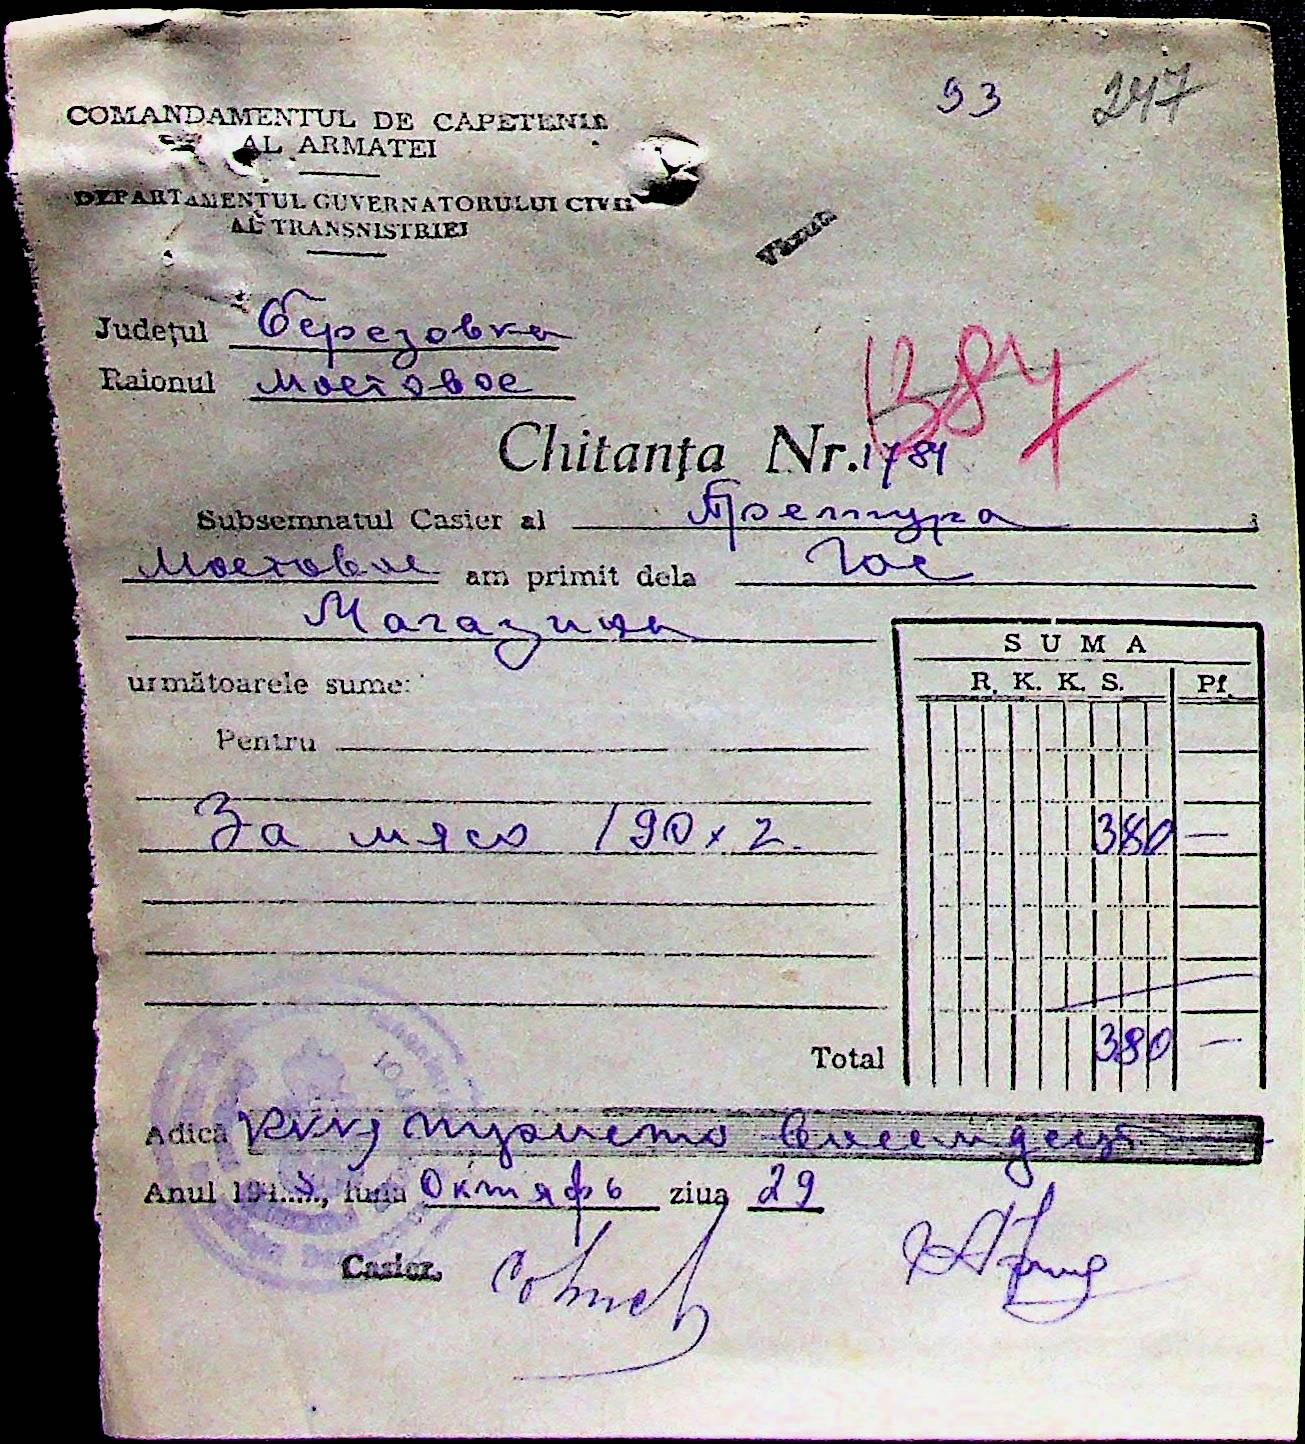 93 247
COMANDAMENTUL DE CAPETENIE
AL ARMATEI
DEPARTAMENTUL GUVERNATORULUI CIVIL
AL TRANSNISTRIEI
Văzut
Județul Березовка
Raionul Мостовое
Chitanța Nr. 1784
Subsemnatul Casier al Претура
Мостовое am primit dela Гос
Магазина
următoarele sume:
SUMA
R. K. K. S. Pf.
Pentru
За мясо 190 x 2. 380 —
Total 380 —
Adică триста восемдесят
Anul 194, luna Октябрь ziua 29
Casier,